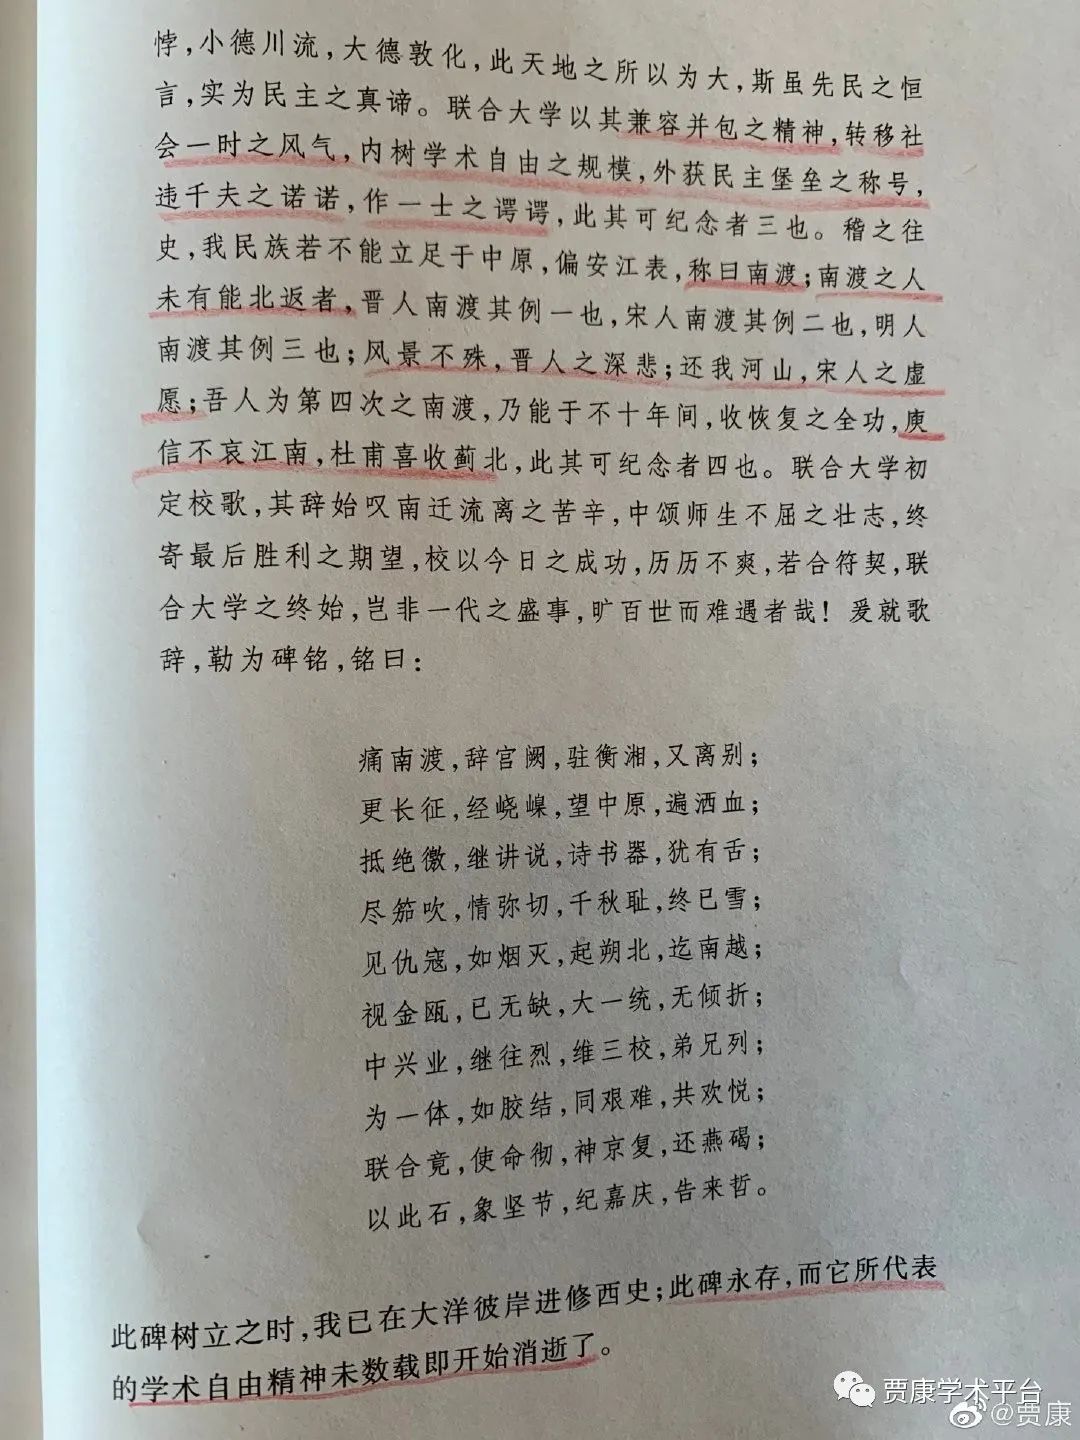 悖,小德川流,大德敦化,此天地之所以为大,斯虽先民之恒
言,实为民主之真谛。联合大学以其兼容并包之精神,转移社
会一时之风气,内树学术自由之规模,外获民主堡垒之称号,
违千夫之诺诺,作一士之谔谔,此其可纪念者三也。稽之往
史,我民族若不能立足于中原,偏安江表,称曰南渡;南渡之人
未有能北返者,晋人南渡其例一也,宋人南渡其例二也,明人
南渡其例三也;风景不殊,晋人之深悲;还我河山,宋人之虚
愿;吾人为第四次之南渡,乃能于不十年间,收恢复之全功,庾
信不哀江南,杜甫喜收蓟北,此其可纪念者四也。联合大学初
定校歌,其辞始叹南迁流离之苦辛,中颂师生不屈之壮志,终
寄最后胜利之期望,校以今日之成功,历历不爽,若合符契,联
合大学之终始,岂非一代之盛事,旷百世而难遇者哉!爰就歌
辞,勒为碑铭,铭曰:
痛南渡,辞宫阙,驻衡湘,又离别;
更长征,经峣嵲,望中原,遍洒血;
抵绝徼,继讲说,诗书器,犹有舌;
尽笳吹,情弥切,千秋耻,终已雪;
见仇寇,如烟灭,起朔北,迄南越;
视金瓯,已无缺,大一统,无倾折;
中兴业,继往烈,维三校,弟兄列;
为一体,如胶结,同艰难,共欢悦;
联合竟,使命彻,神京复,还燕碣;
以此石,象坚节,纪嘉庆,告来哲。
此碑树立之时,我已在大洋彼岸进修西史;此碑永存,而它所代表
的学术自由精神未数载即开始消逝了。
贾康学术平台
@贾康